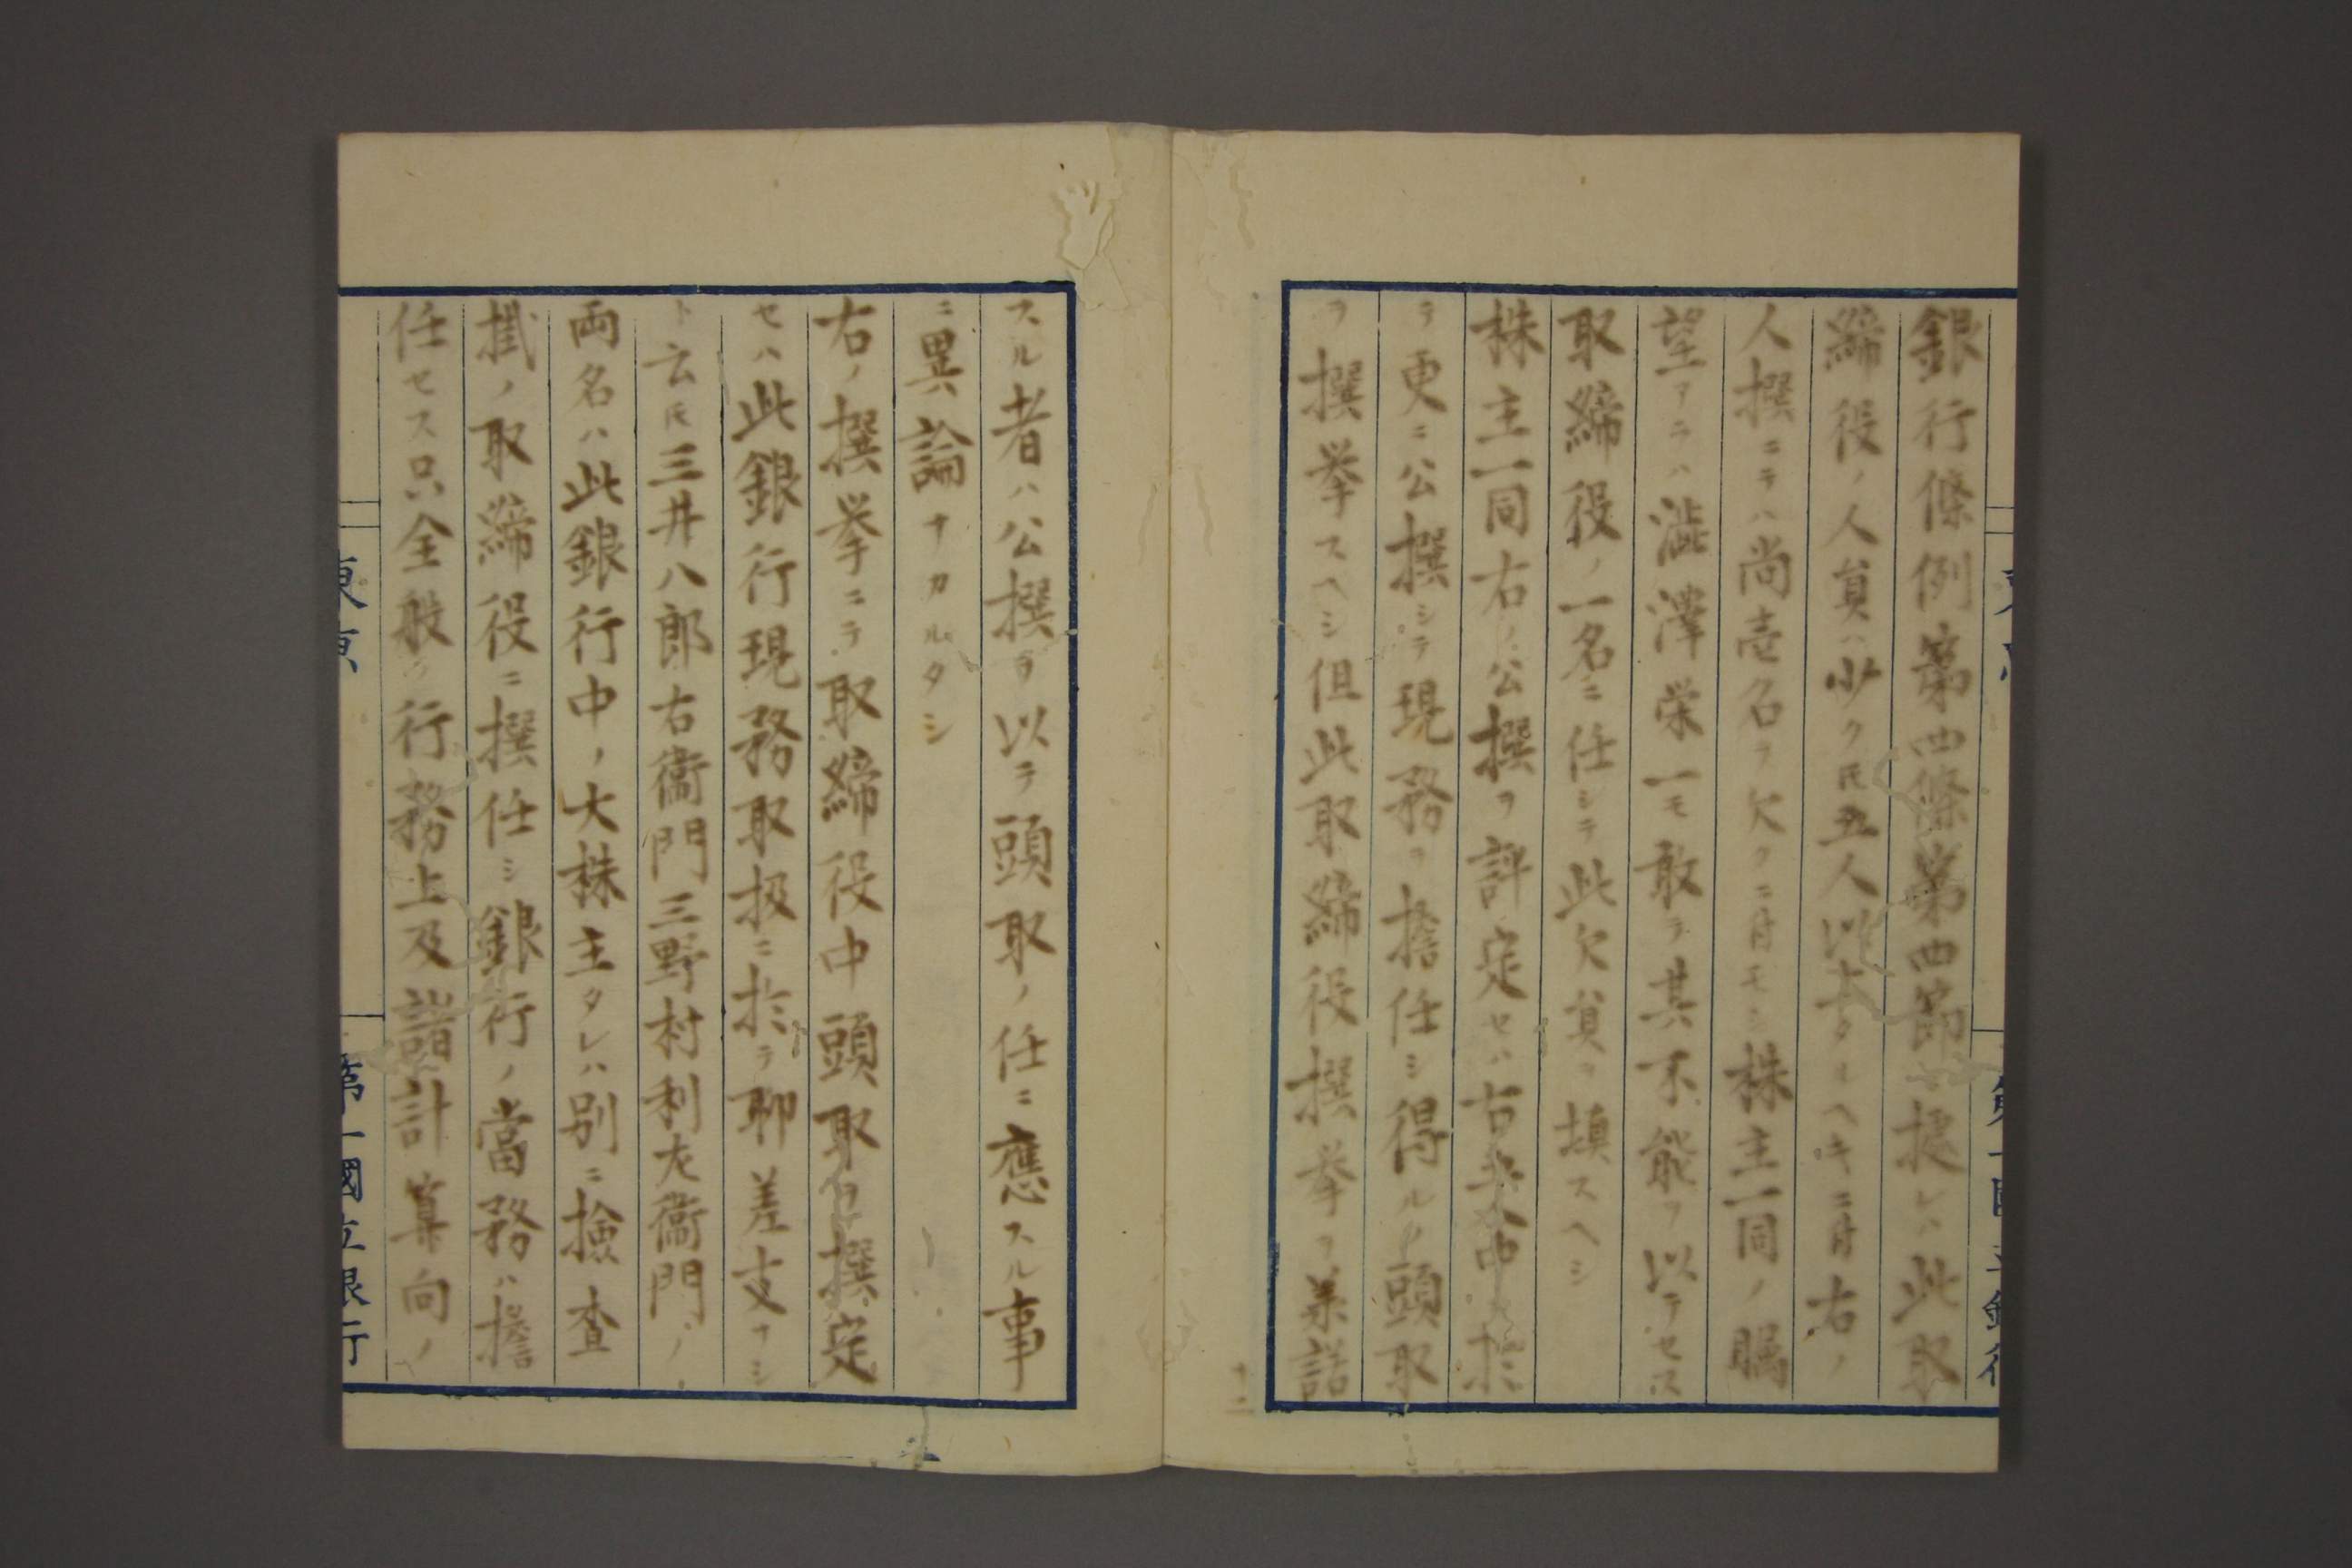 銀行條例第四條第四節ニ據レハ此取
締役ノ人員ハ少ク𪜈五人以上タルヘキニ付右ノ
人撰ニテハ尚壱名ヲ欠クニ付モシ株主一同ノ囑
望アラハ澁澤栄一モ敢テ其不能ヲ以テセス
取締役ノ一名ニ任シテ此欠員ヲ填スヘシ
株主一同右ノ公撰ヲ評定セハ右五人中ニ於
テ更ニ公撰シテ現務ヲ擔任シ得ルノ頭取
ヲ撰挙スヘシ但此取締役撰挙ヲ承諾
スル者ハ公撰ヲ以テ頭取ノ任ニ應スル事
ニ異論ナカルヘシ
右ノ撰挙ニテ取締役中頭取ヲ撰定
セハ此銀行現務取扱ニ於テ聊差支ナシ
ト云𪜈三井八郎右衞門三野村利左衞門ノ
両名ハ此銀行中ノ大株主タレハ別ニ撿査
掛ノ取締役ニ撰任シ銀行ノ當務ハ擔
任セス只全般ノ行務上及諸計算向ノ
東京
第一國立銀行
十二